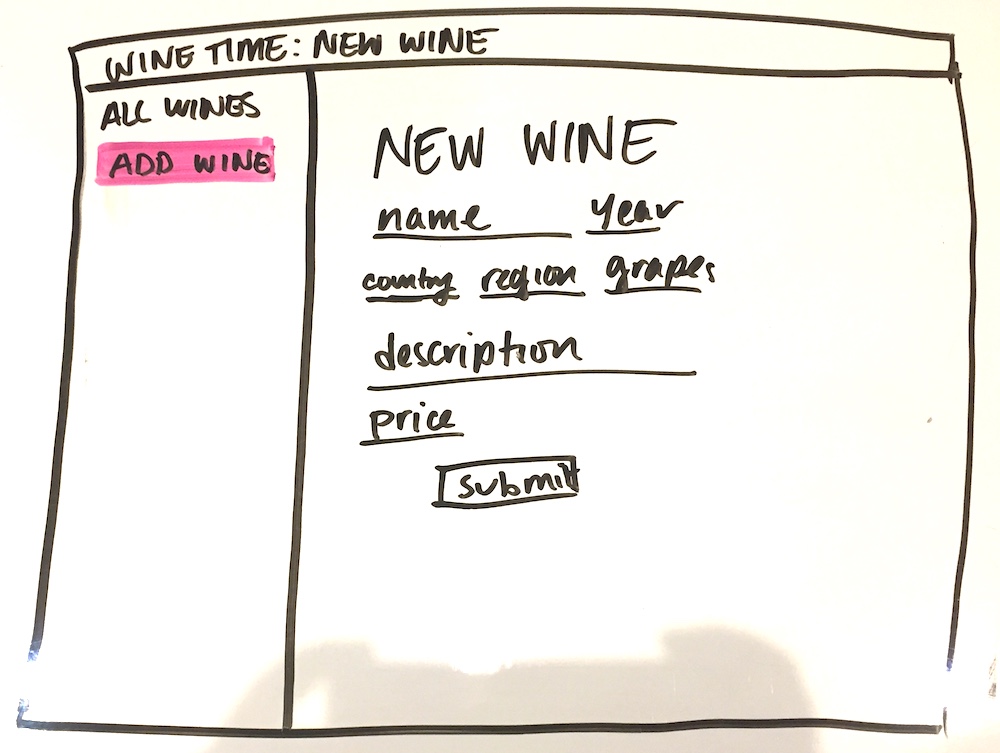 WINE TIME: NEW WINE
ALL WINES
ADD WINE
NEW WINE
name year
country region grapes
description
price
submit